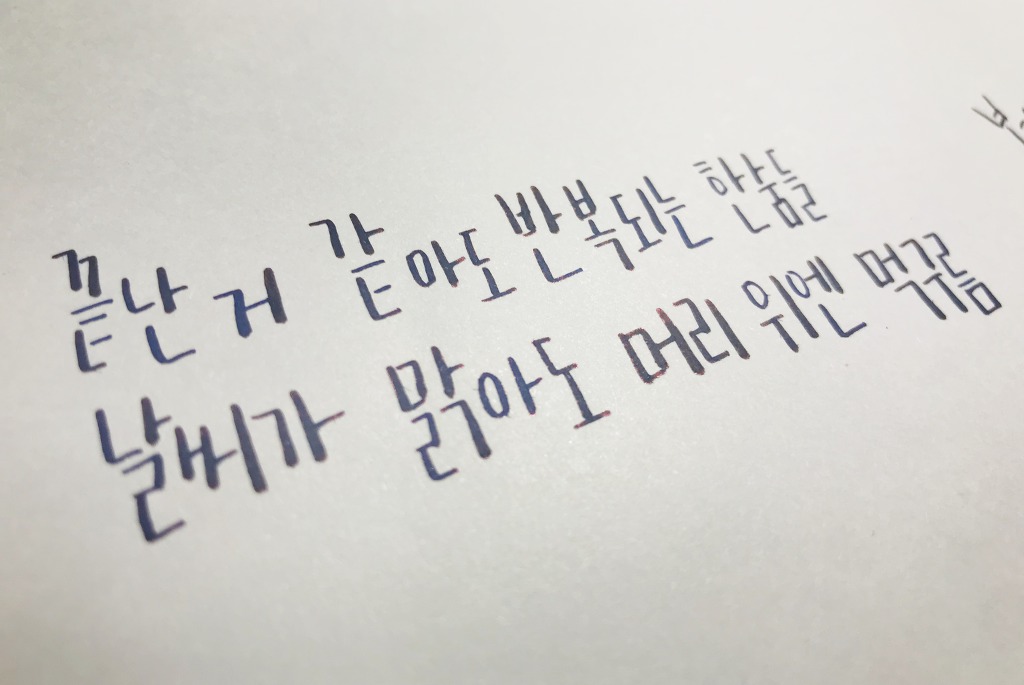 끝난 거 같아도 반복되는
날씨가 맑아도 머리 위엔 먹구름